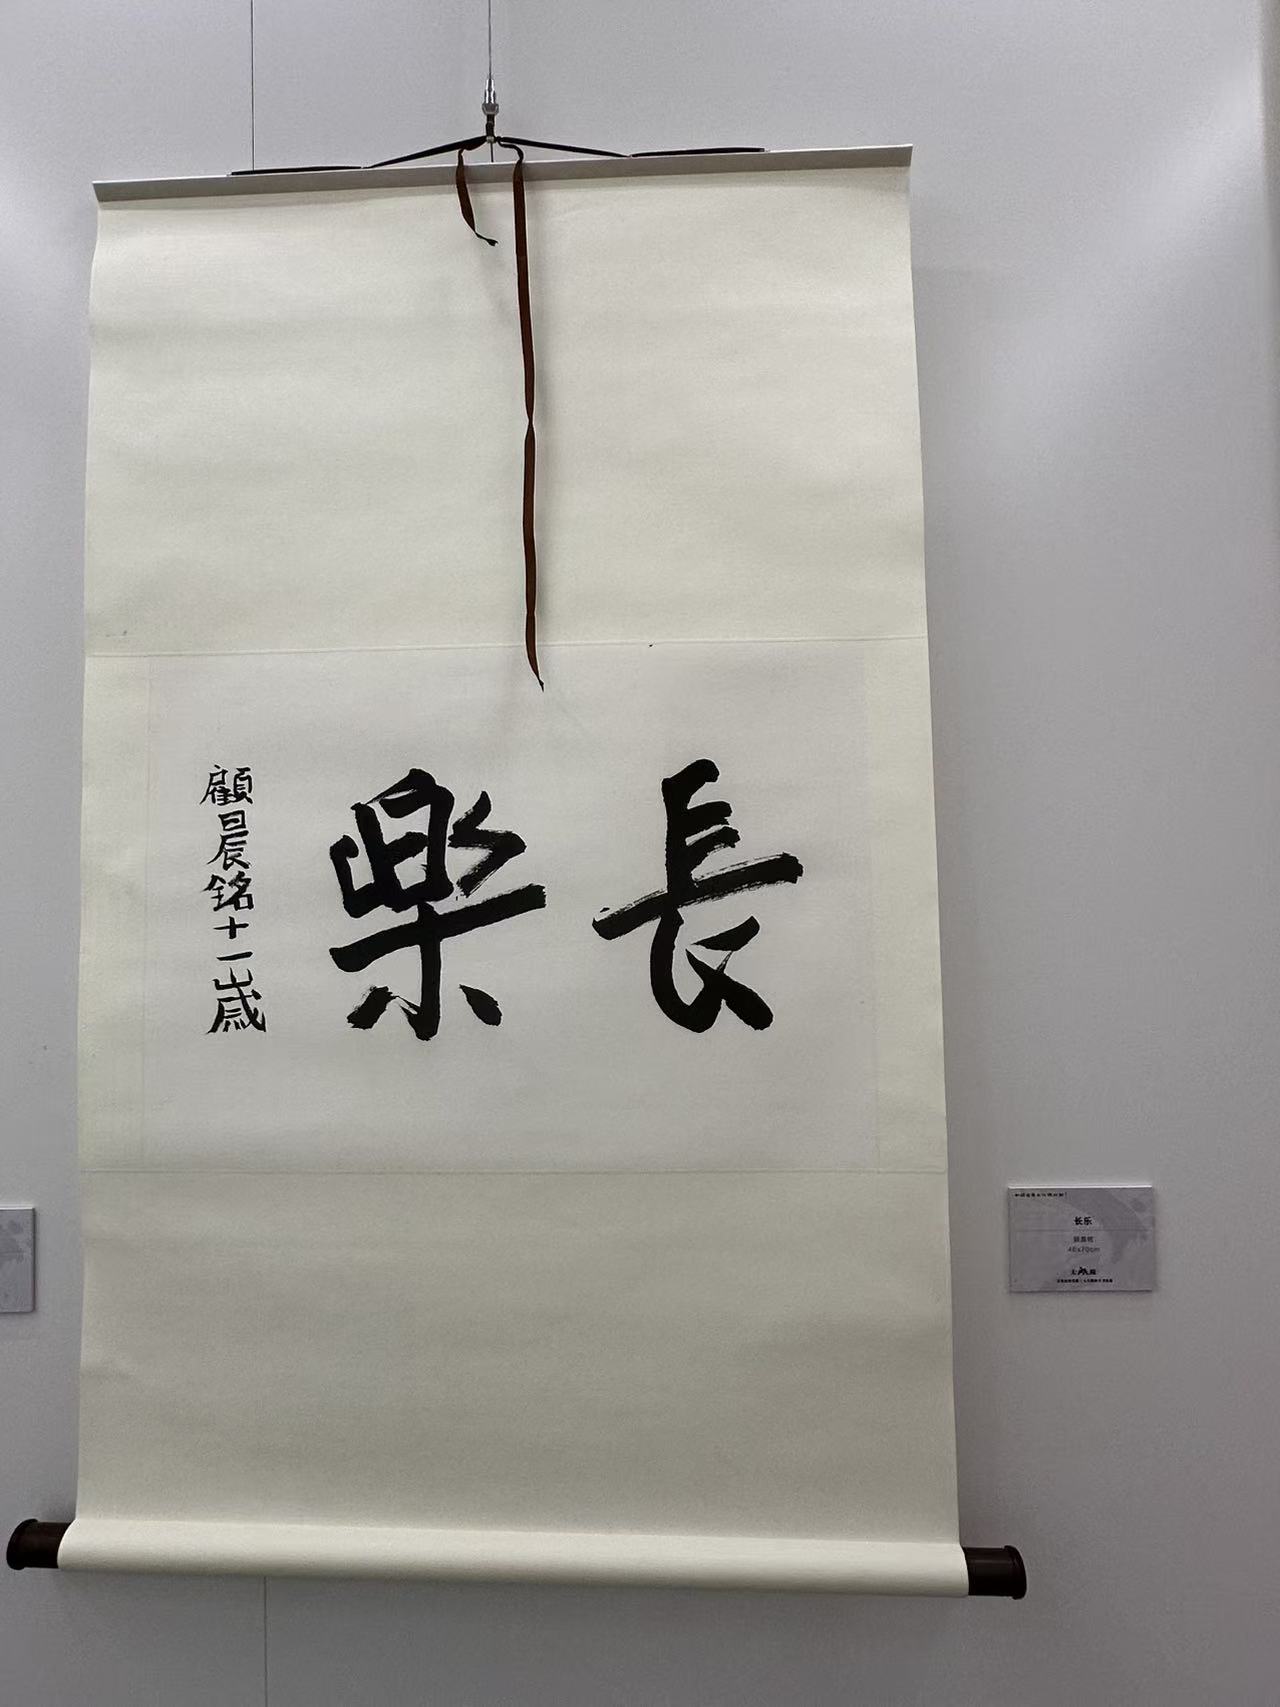 長樂
顧晨銘十一歲
长乐
顾晨铭
46x70cm